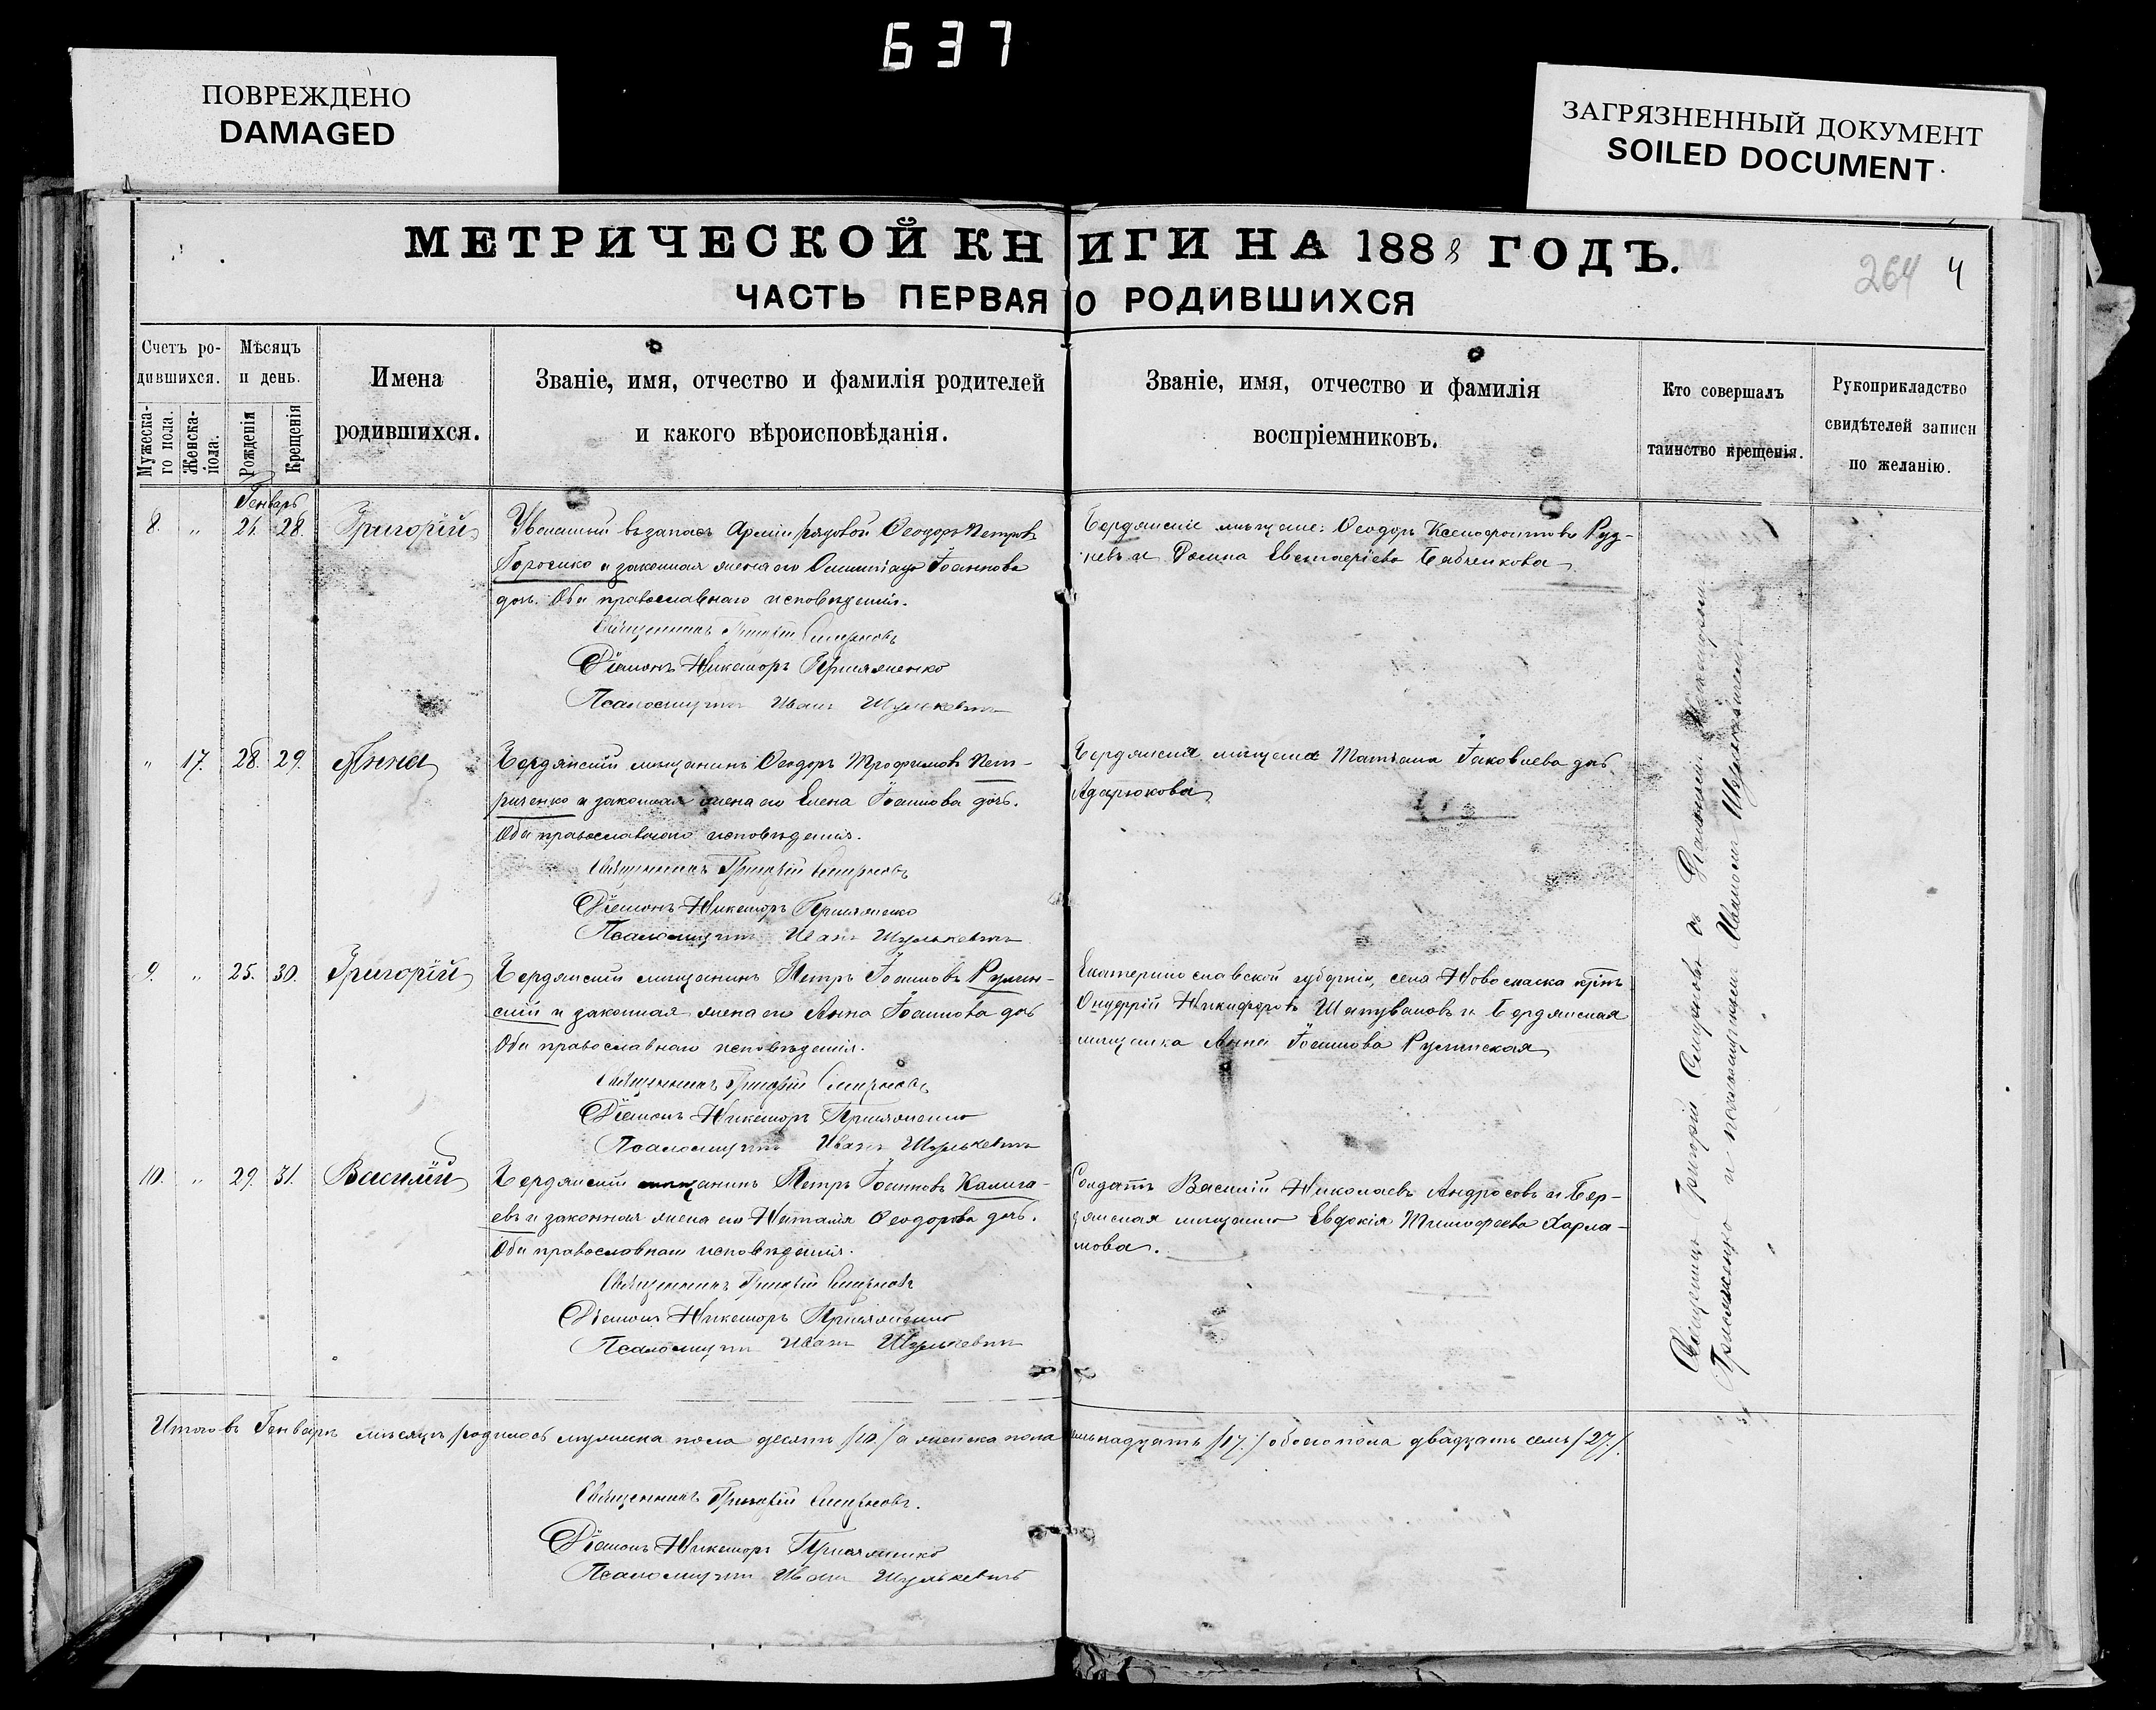 637
ПОВРЕЖДЕНО
DAMAGED
ЗАГРЯЗНЕННЫЙ ДОКУМЕНТ
SOILED DOCUMENT
МЕТРИЧЕСКОЙ КНИГИ НА 1888 ГОДЪ.
264 4
ЧАСТЬ ПЕРВАЯ О РОДИВШИХСЯ
Счетъ ро-
дившихся.
Мужеска-
го пола.
Женска-
пола.
Мѣсяцъ
и день.
Рожденія
Крещенія
Имена
родившихся.
Званіе, имя, отчество и фамилія родителей
и какого вѣроисповѣданія.
Званіе, имя, отчество и фамилія
воспріемниковъ.
Кто совершалъ
таинство крещенія.
Рукоприкладство
свидѣтелей записи
по желанію.
Генварь
8. " 28. Григорій
въ запасъ Арміи рядовой Ѳеодоръ Петровъ
и законная жена его Іоаннова
дочь. Оба православнаго исповѣданія.
Священникъ Григорій Смирновъ
Діаконъ Никаноръ
Псаломщикъ Иванъ Шулькевичъ
Бердянскіе мѣщане: Ѳеодоръ Ксенофонтовъ Руд-
невъ и Евстафіева
" 17. 28. 29. Анна
Бердянскій мѣщанинъ Ѳеодоръ Трофимовъ Пет-
риченко и законная жена его Елена Іоаннова дочь.
Оба православнаго исповѣданія.
Священникъ Григорій Смирновъ
Діаконъ Никаноръ
Псаломщикъ Иванъ Шулькевичъ
Бердянская мѣщанка Татіана Іаковлева дочь
Адарюкова
9. " 25. 30. Григорій
Бердянскій мѣщанинъ Петръ Іоанновъ Румин-
скій и законная жена его Анна Іоаннова дочь
Оба православнаго исповѣданія.
Священникъ Григорій Смирновъ
Діаконъ Никаноръ
Псаломщикъ Иванъ Шулькевичъ
Екатеринославской губерніи, села Новоспаска крест.
Онуфрій Никифоровъ и Бердянская
мѣщанка Анна Іоаннова Руминская
10. " 29. 31. Василій
Бердянскій мѣщанинъ Петръ Іоанновъ Калига-
евъ и законная жена его Наталія Ѳеодорова дочь.
Оба православнаго исповѣданія.
Священникъ Григорій Смирновъ
Діаконъ Никаноръ
Псаломщикъ Иванъ Шулькевичъ
Солдатъ Василій Николаевъ Андросовъ и Бер-
дянская мѣщанка Евдокія Тимофеева Харла-
мова.
Священникъ Григорій Смирновъ съ Діакономъ
и псаломщикомъ Иваномъ Шулькевичемъ
Итого въ Генварѣ мѣсяцѣ родилось мужеска пола десять /10./ а женска пола семьнадцать /17./ обоего пола двадцать семь /27./.
Священникъ Григорій Смирновъ.
Діаконъ Никаноръ
Псаломщикъ Иванъ Шулькевичъ